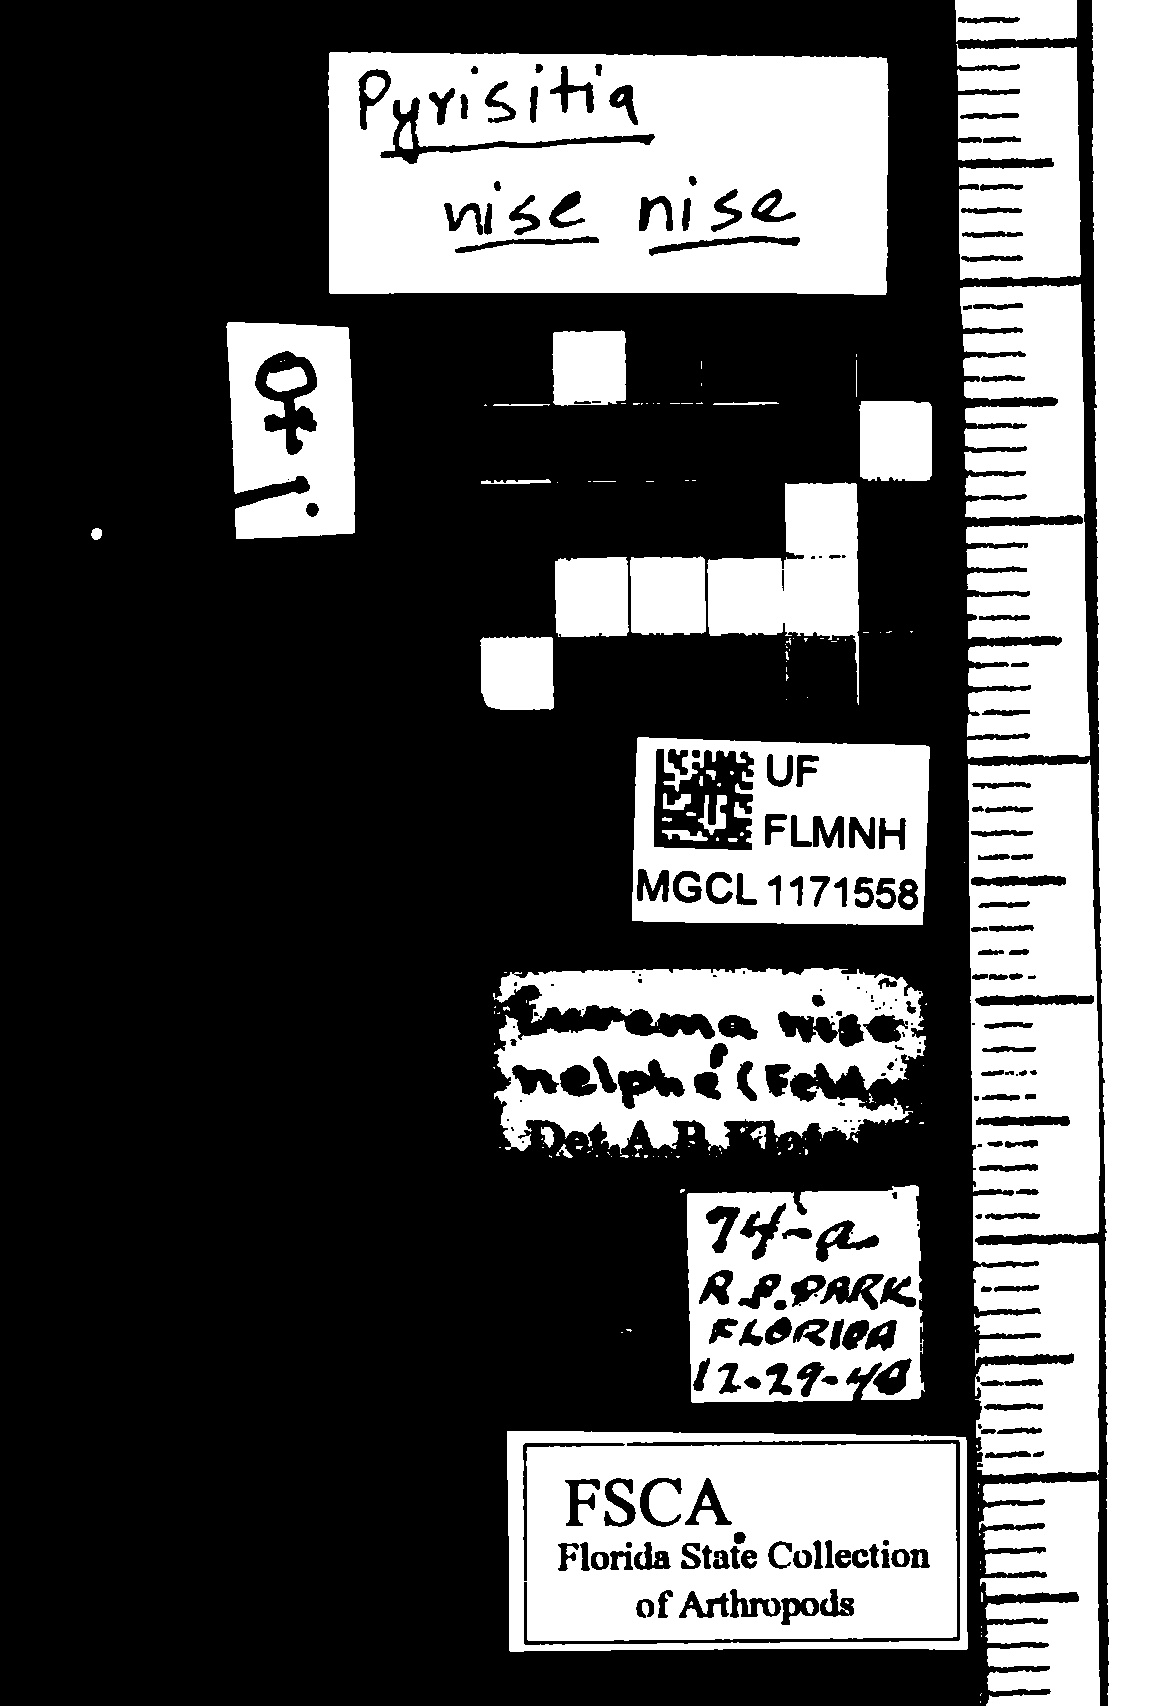 Pyrisitia
nise nise
♀
UF
FLMNH
MGCL 1171558
Eurema nise
nelphe (Felder
Det. A.B. Klots
74-a
R.P. PARK
FLORIDA
12-29-40
FSCA
Florida State Collection
of Arthropods